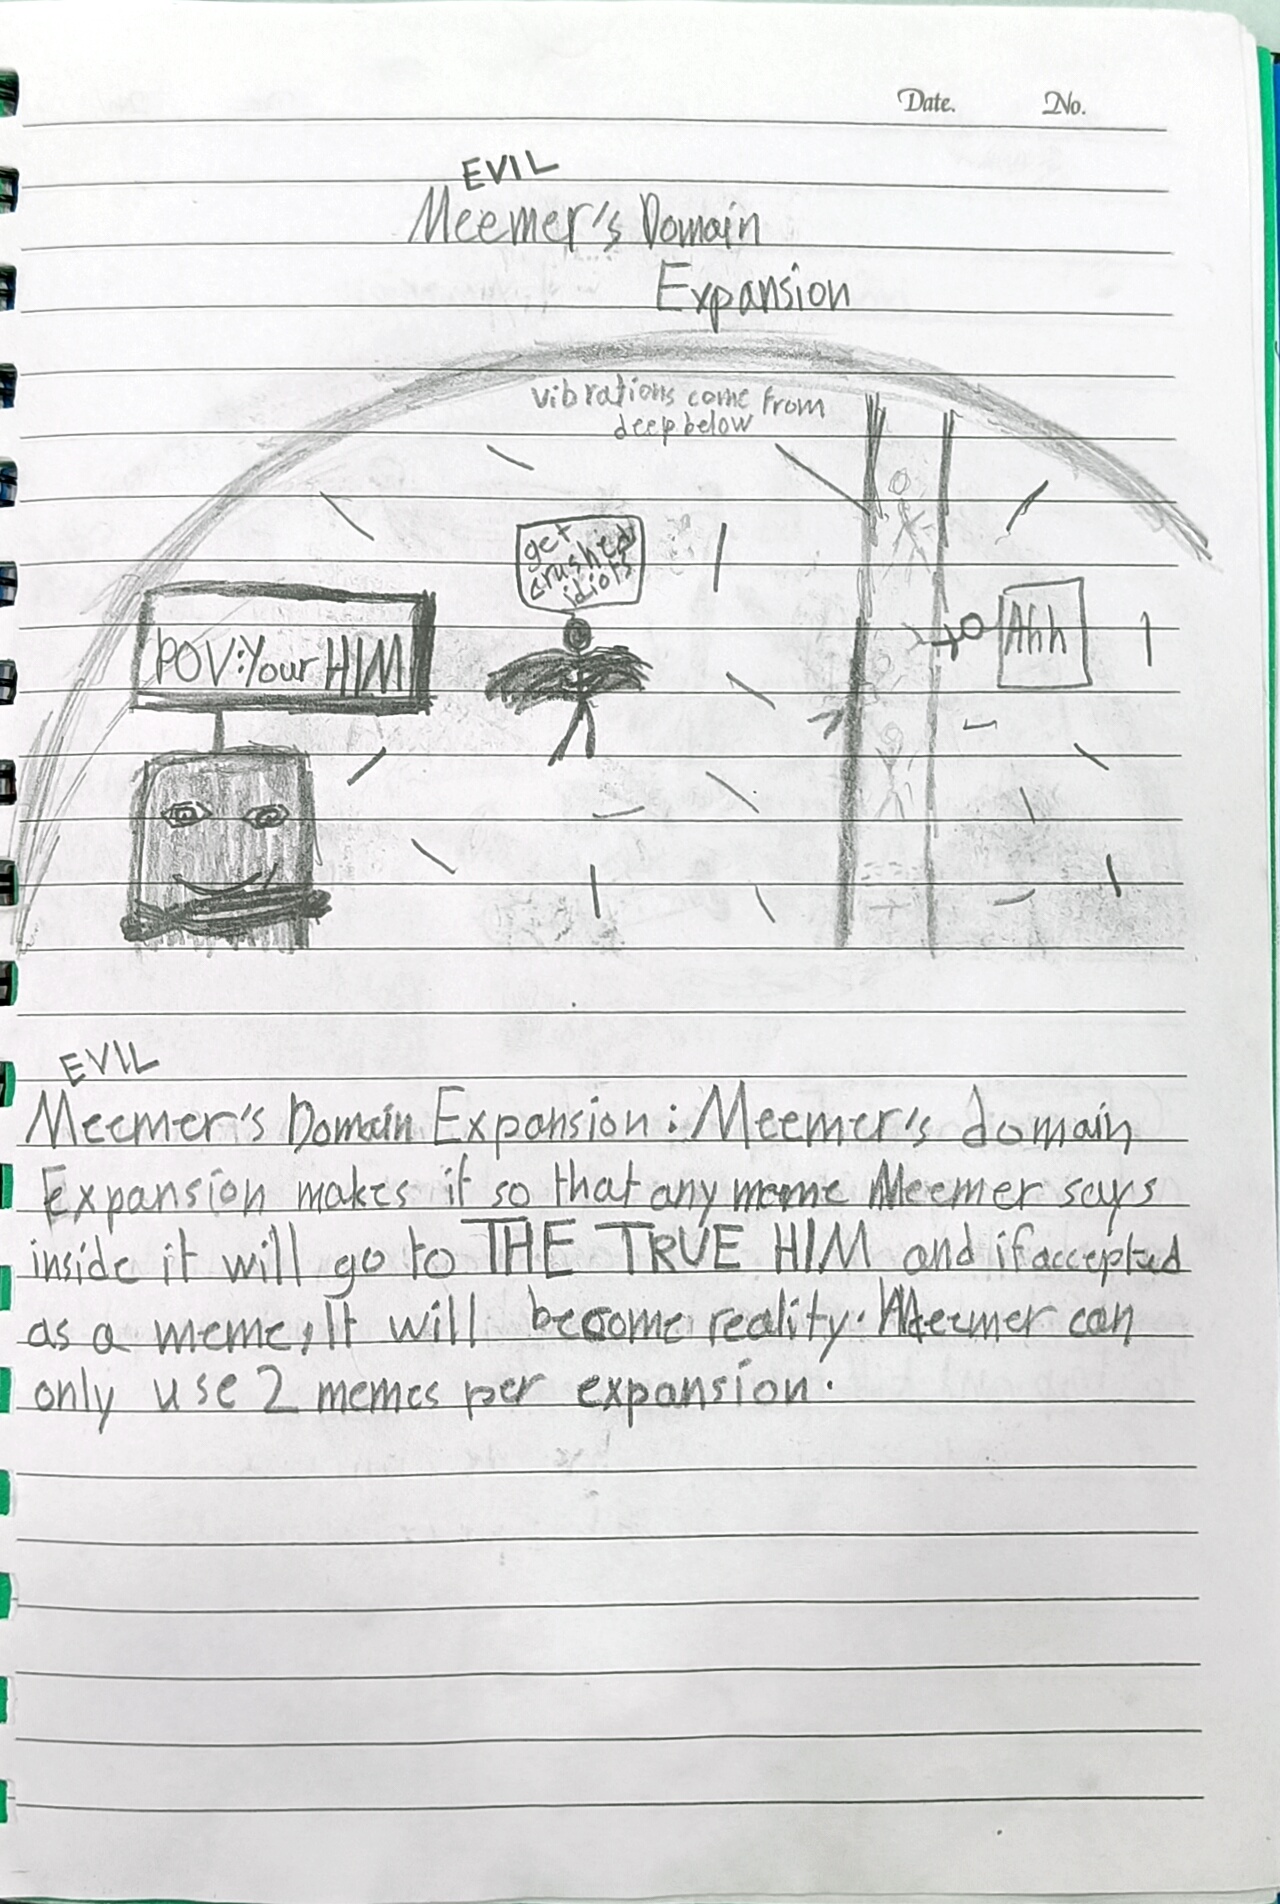 Date. No.
EVIL
Meemer's Domain
Expansion
vibrations come from
deep below
get
crushed
idiots
POV:Your HIM
Ahh
EVIL
Meemer's Domain Expansion: Meemer's domain
Expansion makes it so that any meme Meemer says
inside it will go to THE TRUE HIM and if accepted
as a meme, It will become reality. Meemer can
only use 2 memes per expansion.